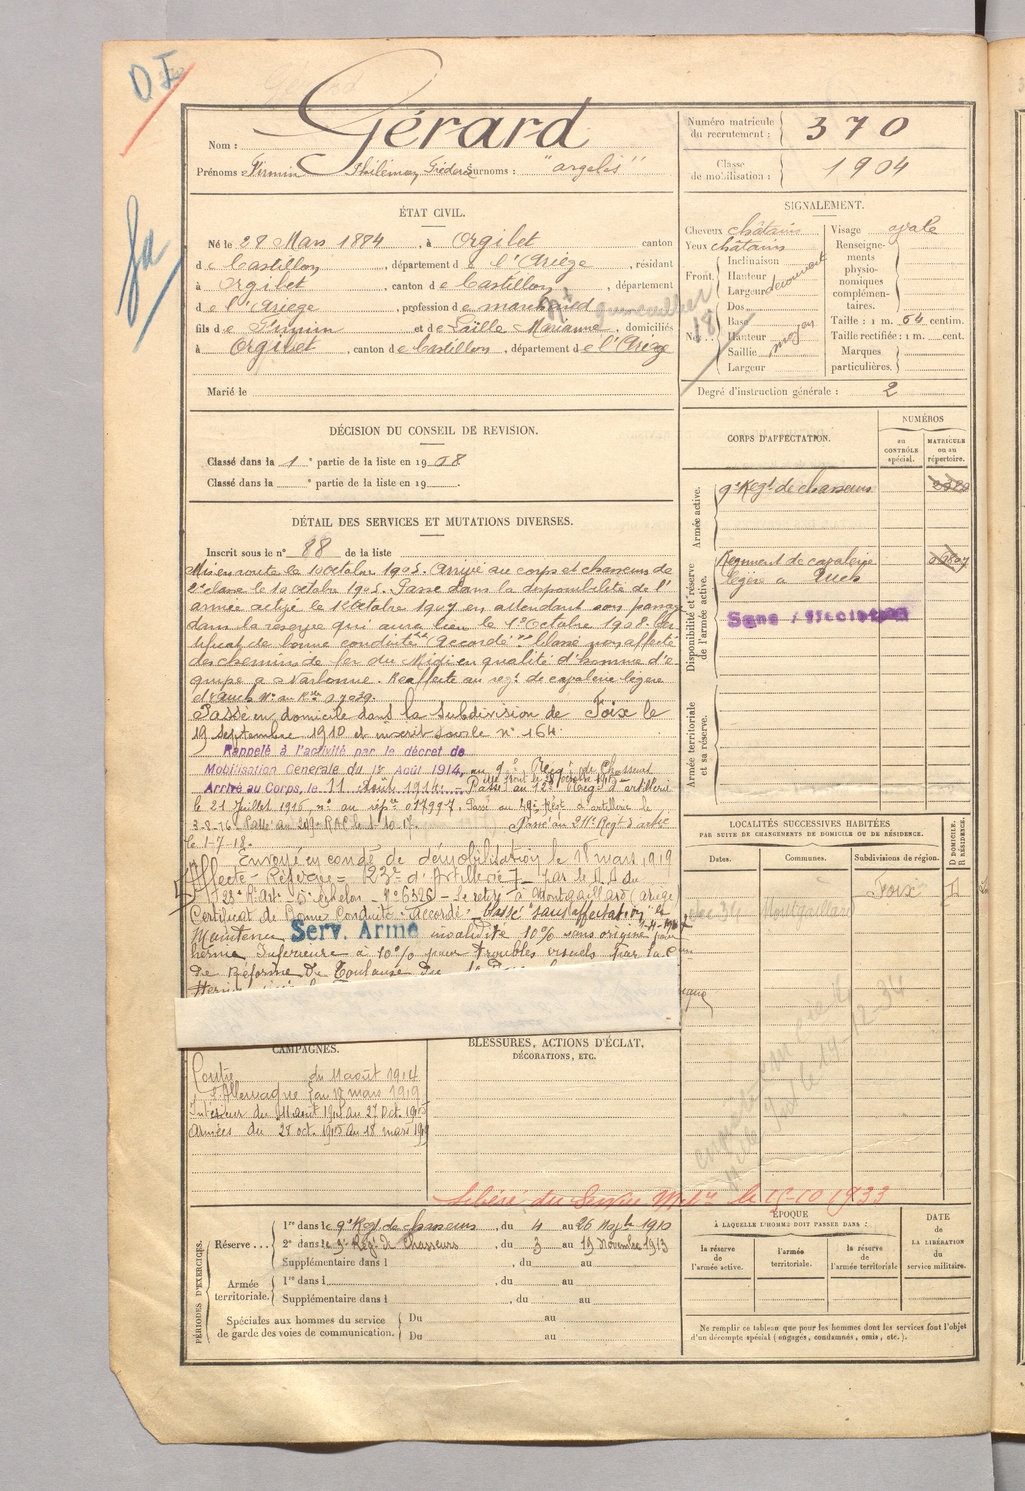 D I
Nom : Gérard
Prénoms : Firmin Philémon Surnoms : "argelès"
Numéro matricule du recrutement : 370
Classe de mobilisation : 1904
ÉTAT CIVIL.
Né le 28 Mars 1884, à Orgibet canton
de Castillon, département de l'Ariège, résidant
à Orgibet, canton de Castillon, département
de l'Ariège, profession de marchand quincaillier
fils de Firmin et de Laille Marianne, domiciliés
à Orgibet, canton de Castillon, département de l'Ariège
Marié le
SIGNALEMENT.
Cheveux châtains
Yeux châtains
Front. Inclinaison
Hauteur
Largeur découvert
Nez. Dos
Base
Hauteur
Saillie moyen
Largeur
Visage ovale
Renseignements physionomiques complémentaires.
Taille : 1 m. 64 centim.
Taille rectifiée : 1 m. cent.
Marques particulières.
Degré d'instruction générale : 2
18
DÉCISION DU CONSEIL DE REVISION.
Classé dans la 1e partie de la liste en 1908
Classé dans la e partie de la liste en 19 .
CORPS D'AFFECTATION.
NUMÉROS
au CONTRÔLE spécial.
MATRICULE ou au répertoire.
Armée active.
9e Regt de chasseurs
Disponibilité et réserve de l'armée active.
Regiment de cavalerie
légère à Auch
Sans Affectation
Armée territoriale et sa réserve.
DÉTAIL DES SERVICES ET MUTATIONS DIVERSES.
Inscrit sous le n° 88 de la liste
Mis en route le 10 octobre 1905. Arrivé au corps et chasseur de
2e classe le 10 octobre 1905. Passé dans la disponibilité de l'
armée active le 1 octobre 1907 en attendant son passage
dans la réserve qui aura lieu le 1er Octobre 1908. Cer-
tificat de bonne conduite "Accordé". Classé non affecté
des chemins de fer du Midi en qualité d'homme d'é-
quipe à Narbonne. Réaffecté au regt de cavalerie légère
d'Auch
Passé en domicile dans la subdivision de Foix le
19 septembre 1910 et inscrit sous le n° 164.
Rappelé à l'activité par le décret de
Mobilisation Générale du 1er Août 1914, au 9e Regt de Chasseurs
Arrivé au Corps, le 11 Août 1914. Passé au Regt d'artillerie
le 21 Juillet 1916, n° au répre 017997. Passé au 49e Regt d'artillerie le
3-8-16. Passé au RAC le 1-10-17. Passé au 211e Regt d'artie
le 1-7-18.
Envoyé en congé de démobilisation le 18 mars 1919
Affecté Réserve 23e d'Artillerie
23e R. Art. N° 6326 Se retire à Montgaillard (Ariège)
Certificat de Bonne Conduite : Accordé. Classé sans affectation
Maintenu Serv. Armé invalidité 10% sans origine pour
hernie Inférieure à 10% pour troubles visuels Par la C
de Réforme De Toulouse du
LOCALITÉS SUCCESSIVES HABITÉES
PAR SUITE DE CHANGEMENTS DE DOMICILE OU DE RÉSIDENCE.
Dates. Communes. Subdivisions de région. D DOMICILE. R RÉSIDENCE.
dec 34 Montgaillard Foix
CAMPAGNES.
Contre du 11 août 1914
l'Allemagne au 18 mars 1919
Intérieur du 11 août 1914 au 27 Oct. 1915
Armées du 28 oct. 1915 au 18 mars 1919
BLESSURES, ACTIONS D'ÉCLAT,
DÉCORATIONS, ETC.
Libéré du Service Militre le 15-10 1933
PÉRIODES D'EXERCICES.
Réserve... 1re dans le 9e Reg. de chasseurs, du 4 au 26 Novbre 1910
2e dans le 9e Régt de Chasseurs, du 3 au 19 Novembre 1913
Supplémentaire dans l , du au
Armée territoriale. 1re dans l , du au
Supplémentaire dans l , du au
Spéciales aux hommes du service de garde des voies de communication. Du au
Du au
ÉPOQUE
À LAQUELLE L'HOMME DOIT PASSER DANS :
la réserve de l'armée active.
l'armée territoriale.
la réserve de l'armée territoriale
DATE DE LA LIBÉRATION du service militaire.
Ne remplir ce tableau que pour les hommes dont les services font l'objet
d'un décompte spécial (engagés, condamnés, omis, etc.).